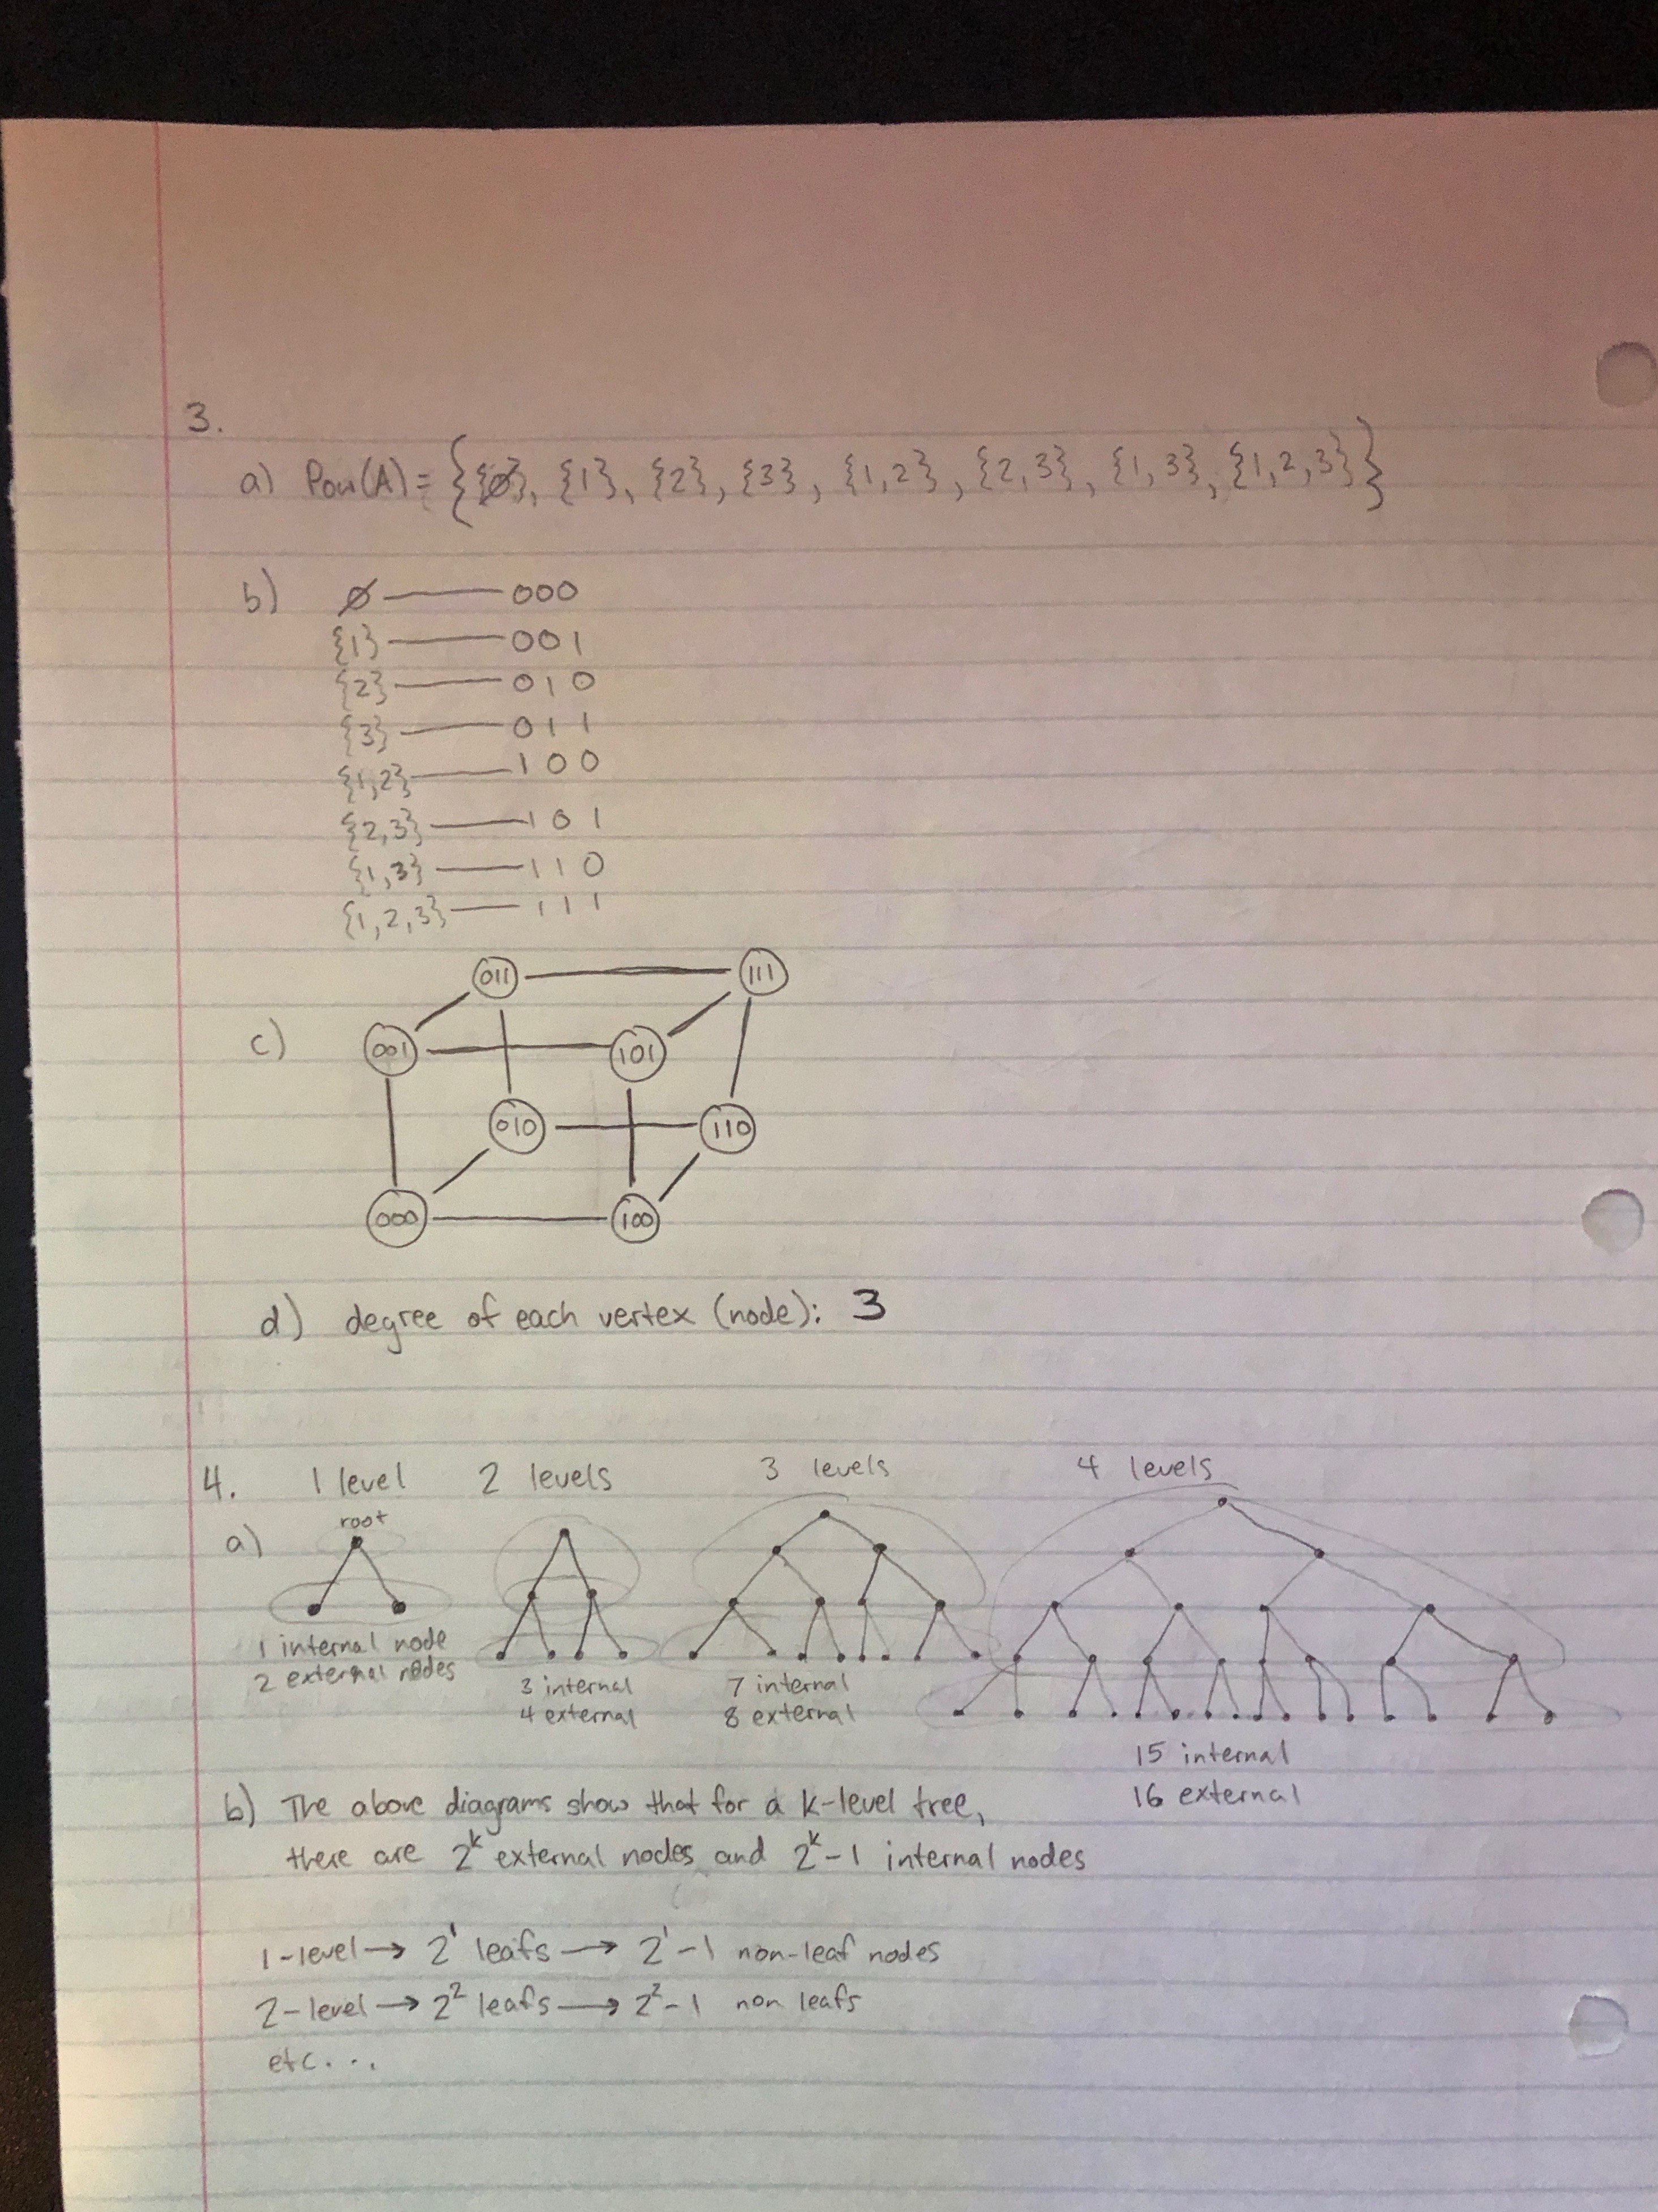 3.
a) Pow(A) = {{∅}, {1}, {2}, {3}, {1,2}, {2,3}, {1,3}, {1,2,3}}
b) ∅ — 000
{1} — 001
{2} — 010
{3} — 011
{1,2} — 100
{2,3} — 101
{1,3} — 110
{1,2,3} — 111
c)
011 111
001 101
010 110
000 100
d) degree of each vertex (node): 3
4. 1 level 2 levels 3 levels 4 levels
root
a)
1 internal node
2 external nodes
3 internal
4 external
7 internal
8 external
15 internal
16 external
b) The above diagrams show that for a k-level tree,
there are 2^k external nodes and 2^k-1 internal nodes
1-level → 2^1 leafs → 2^1-1 non-leaf nodes
2-level → 2^2 leafs → 2^2-1 non leafs
etc...